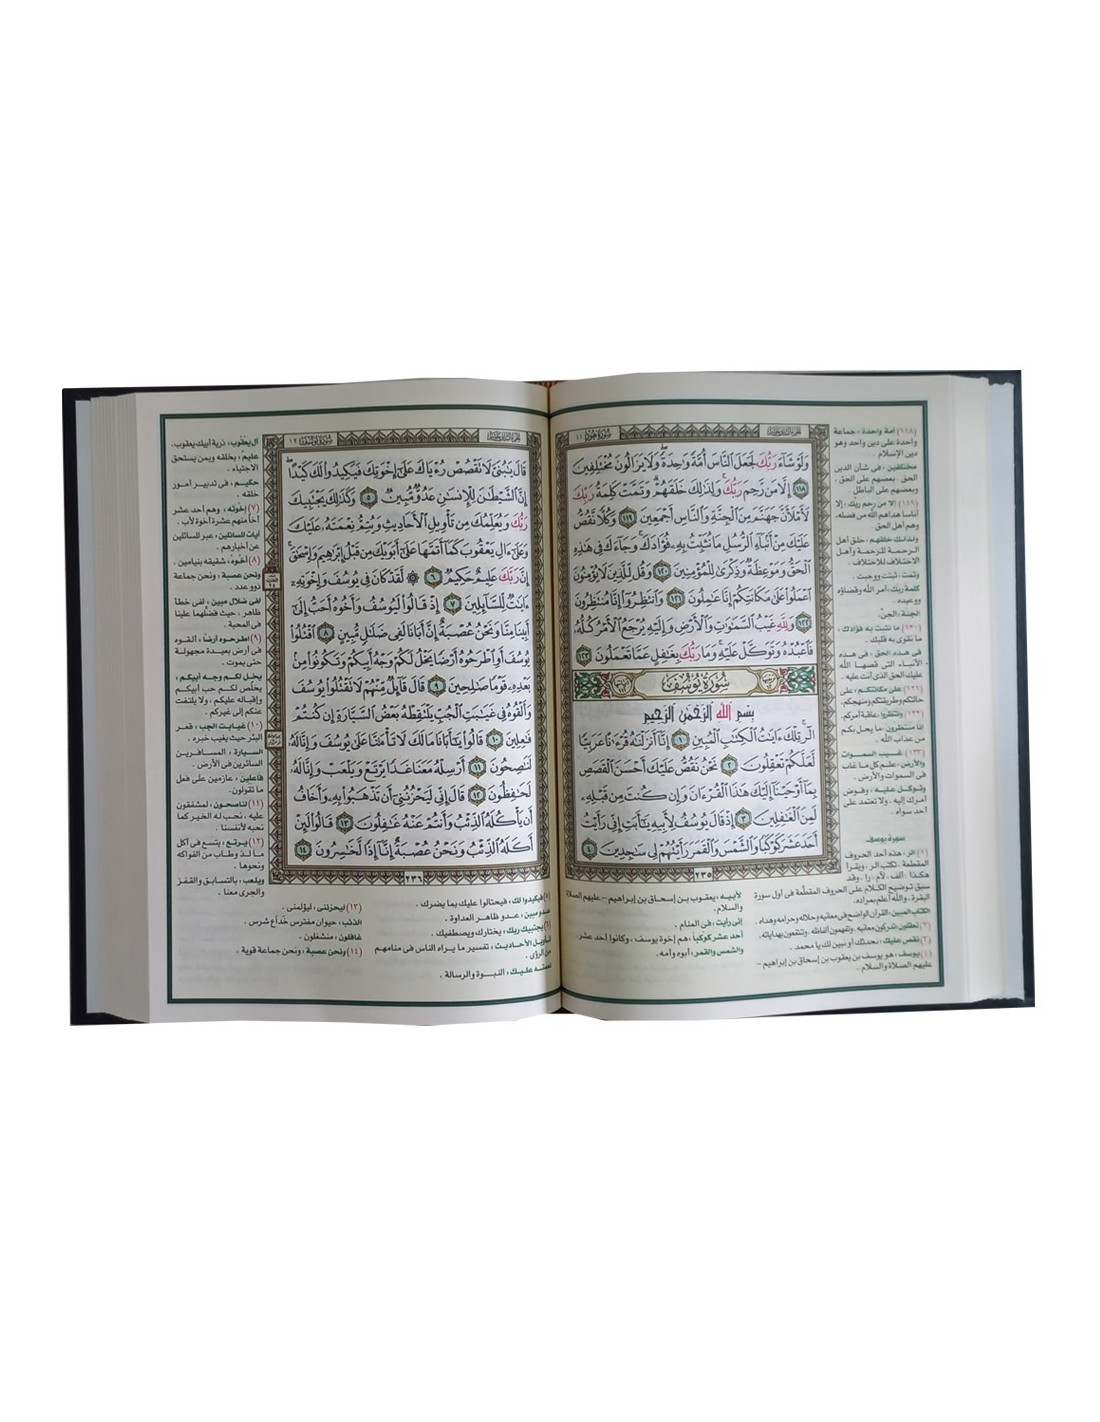 سورة هود ١١
وَلَوْ شَآءَ رَبُّكَ لَجَعَلَ ٱلنَّاسَ أُمَّةً وَٰحِدَةً ۖ وَلَا يَزَالُونَ مُخْتَلِفِينَ
١١٨ إِلَّا مَن رَّحِمَ رَبُّكَ ۚ وَلِذَٰلِكَ خَلَقَهُمْ ۗ وَتَمَّتْ كَلِمَةُ رَبِّكَ
لَأَمْلَأَنَّ جَهَنَّمَ مِنَ ٱلْجِنَّةِ وَٱلنَّاسِ أَجْمَعِينَ ١١٩ وَكُلًّا نَّقُصُّ
عَلَيْكَ مِنْ أَنۢبَآءِ ٱلرُّسُلِ مَا نُثَبِّتُ بِهِۦ فُؤَادَكَ ۚ وَجَآءَكَ فِى هَٰذِهِ
ٱلْحَقُّ وَمَوْعِظَةٌ وَذِكْرَىٰ لِلْمُؤْمِنِينَ ١٢٠ وَقُل لِّلَّذِينَ لَا يُؤْمِنُونَ
ٱعْمَلُوا۟ عَلَىٰ مَكَانَتِكُمْ إِنَّا عَٰمِلُونَ ١٢١ وَٱنتَظِرُوٓا۟ إِنَّا مُنتَظِرُونَ
١٢٢ وَلِلَّهِ غَيْبُ ٱلسَّمَٰوَٰتِ وَٱلْأَرْضِ وَإِلَيْهِ يُرْجَعُ ٱلْأَمْرُ كُلُّهُۥ
فَٱعْبُدْهُ وَتَوَكَّلْ عَلَيْهِ ۚ وَمَا رَبُّكَ بِغَٰفِلٍ عَمَّا تَعْمَلُونَ ١٢٣
سُورَةُ يُوسُفَ
بِسْمِ ٱللَّهِ ٱلرَّحْمَٰنِ ٱلرَّحِيمِ
الٓر ۚ تِلْكَ ءَايَٰتُ ٱلْكِتَٰبِ ٱلْمُبِينِ ١ إِنَّآ أَنزَلْنَٰهُ قُرْءَٰنًا عَرَبِيًّا
لَّعَلَّكُمْ تَعْقِلُونَ ٢ نَحْنُ نَقُصُّ عَلَيْكَ أَحْسَنَ ٱلْقَصَصِ
بِمَآ أَوْحَيْنَآ إِلَيْكَ هَٰذَا ٱلْقُرْءَانَ وَإِن كُنتَ مِن قَبْلِهِۦ
لَمِنَ ٱلْغَٰفِلِينَ ٣ إِذْ قَالَ يُوسُفُ لِأَبِيهِ يَٰٓأَبَتِ إِنِّى رَأَيْتُ
أَحَدَ عَشَرَ كَوْكَبًا وَٱلشَّمْسَ وَٱلْقَمَرَ رَأَيْتُهُمْ لِى سَٰجِدِينَ ٤
٢٣٥
(١١٨) أمة واحدة ، جماعة
واحدة على دين واحد وهو
دين الإسلام .
مختلفين ، فى شأن الدين
الحق بعضهم على الحق .
وبعضهم على الباطل .
(١١٩) إلا من رحم ربك ، إلا
أناسا هداهم الله من فضله،
وهم أهل الحق .
ولذلك خلقهم ، خلق أهل
الرحمة للرحمة وأهل
الاختلاف للاختلاف .
وتمت ، ثبتت ووجبت .
كلمة ربك ، أمر الله وقضاؤه
ووعيده .
الجنة ، الجن.
(١٢٠) ما نثبت به فؤادك ،
ما نقوى به قلبك .
فى هذه الحق ، فى هذه
الأنباء التى قصها الله
عليك الحق الذى أنت عليه .
(١٢١) على مكانتكم ، على
حالتكم وطريقتكم ومنهجكم.
(١٢٢) وانتظروا، عاقبة أمركم.
إنا منتظرون ، ما يحل بكم
من عذاب الله .
(١٢٣) غيب السموات
والأرض ، علم كل ما غاب
فى السموات والأرض .
وتوكل عليه ، وفوض
أمرك إليه . ولا تعتمد على
أحد سواه .
سورة يوسف
(١) الر ، هذه أحد الحروف
المقطعة ، تكتب الر ، ويقرأ
هكذا : ألف . لام . را . وقد
سبق توضيح الكلام على الحروف المقطعة فى أول سورة
البقرة . والله أعلم بمراده.
الكتاب المبين، القرآن الواضح فى معانيه وحلاله وحرامه وهداه .
(٢) تعقلون، تدركون معانيه . وتفهمون ألفاظه . وتنتفعون بهداياته.
(٣) نقص عليك ، نحدثك أو نبين لك يا محمد .
(٤) يوسف ، هو يوسف بن يعقوب بن إسحاق بن إبراهيم –
عليهم الصلاة والسلام .
لأبيه ، يعقوب بن إسحاق بن إبراهيم – عليهم الصلاة
والسلام.
إنى رأيت ، فى المنام .
أحد عشر كوكبا ، هم إخوة يوسف ، وكانوا أحد عشر.
والشمس والقمر ، أبوه وأمه .
سورة يوسف ١٢
قَالَ يَٰبُنَىَّ لَا تَقْصُصْ رُءْيَاكَ عَلَىٰٓ إِخْوَتِكَ فَيَكِيدُوا۟ لَكَ كَيْدًا ۖ
إِنَّ ٱلشَّيْطَٰنَ لِلْإِنسَٰنِ عَدُوٌّ مُّبِينٌ ٥ وَكَذَٰلِكَ يَجْتَبِيكَ
رَبُّكَ وَيُعَلِّمُكَ مِن تَأْوِيلِ ٱلْأَحَادِيثِ وَيُتِمُّ نِعْمَتَهُۥ عَلَيْكَ
وَعَلَىٰٓ ءَالِ يَعْقُوبَ كَمَآ أَتَمَّهَا عَلَىٰٓ أَبَوَيْكَ مِن قَبْلُ إِبْرَٰهِيمَ وَإِسْحَٰقَ ۚ
إِنَّ رَبَّكَ عَلِيمٌ حَكِيمٌ ٦ ۞ لَّقَدْ كَانَ فِى يُوسُفَ وَإِخْوَتِهِۦٓ
ءَايَٰتٌ لِّلسَّآئِلِينَ ٧ إِذْ قَالُوا۟ لَيُوسُفُ وَأَخُوهُ أَحَبُّ إِلَىٰٓ
أَبِينَا مِنَّا وَنَحْنُ عُصْبَةٌ إِنَّ أَبَانَا لَفِى ضَلَٰلٍ مُّبِينٍ ٨ ٱقْتُلُوا۟
يُوسُفَ أَوِ ٱطْرَحُوهُ أَرْضًا يَخْلُ لَكُمْ وَجْهُ أَبِيكُمْ وَتَكُونُوا۟ مِنۢ
بَعْدِهِۦ قَوْمًا صَٰلِحِينَ ٩ قَالَ قَآئِلٌ مِّنْهُمْ لَا تَقْتُلُوا۟ يُوسُفَ
وَأَلْقُوهُ فِى غَيَٰبَتِ ٱلْجُبِّ يَلْتَقِطْهُ بَعْضُ ٱلسَّيَّارَةِ إِن كُنتُمْ
فَٰعِلِينَ ١٠ قَالُوا۟ يَٰٓأَبَانَا مَا لَكَ لَا تَأْمَ۫نَّا عَلَىٰ يُوسُفَ وَإِنَّا لَهُۥ
لَنَٰصِحُونَ ١١ أَرْسِلْهُ مَعَنَا غَدًا يَرْتَعْ وَيَلْعَبْ وَإِنَّا لَهُۥ
لَحَٰفِظُونَ ١٢ قَالَ إِنِّى لَيَحْزُنُنِىٓ أَن تَذْهَبُوا۟ بِهِۦ وَأَخَافُ
أَن يَأْكُلَهُ ٱلذِّئْبُ وَأَنتُمْ عَنْهُ غَٰفِلُونَ ١٣ قَالُوا۟ لَئِنْ
أَكَلَهُ ٱلذِّئْبُ وَنَحْنُ عُصْبَةٌ إِنَّآ إِذًا لَّخَٰسِرُونَ ١٤
٢٣٦
(٥) فيكيدوا لك، فيحتالوا عليك بما يضرك .
عدو مبين ، عدو ظاهر العداوة .
(٦) يجتبيك ربك ، يختارك ويصطفيك .
تأويل الأحاديث ، تفسير ما يراه الناس فى منامهم
من الرؤى .
نعمته عليك ، النبوة والرسالة .
آل يعقوب ، ذرية أبيك يعقوب.
عليم ، بخلقه وبمن يستحق
الاجتباء .
حكيم ، فى تدبير أمور
خلقه .
(٧) إخوته ، وهم أحد عشر
أخاً منهم عشرة أخوة لأب .
آيات للسائلين ، عبر للسائلين
عن أخبارهم .
(٨) أخوه ، شقيقه بنيامين .
ونحن عصبة ، ونحن جماعة
ذوو عدد .
لفى ضلال مبين ، لفى خطأ
ظاهر ، حيث فضلهما علينا
فى المحبة .
(٩) اطرحوه أرضا ، ألقوه
فى أرض بعيدة مجهولة
حتى يموت .
يخل لكم وجه أبيكم ،
يخلص لكم حب أبيكم
وإقباله عليكم . ولا يلتفت
عنكم إلى غيركم .
(١٠) غيابت الجب ، قعر
البئر حيث يغيب خبره .
السيارة ، المسافرين
السائرين فى الأرض .
فاعلين ، عازمين على فعل
ما تقولون.
(١١) لناصحون ، لمشفقون
عليه . نحب له الخير كما
نحبه لأنفسنا .
(١٢) يرتع ، يتسع فى أكل
ما لذ وطاب من الفواكه
ونحوها .
ويلعب ، بالتسابق والقفز
والجرى معنا .
(١٣) ليحزننى ، ليؤلمنى .
الذئب ، حيوان مفترس خداع شرس .
غافلون ، منشغلون .
(١٤) ونحن عصبة ، ونحن جماعة قوية .